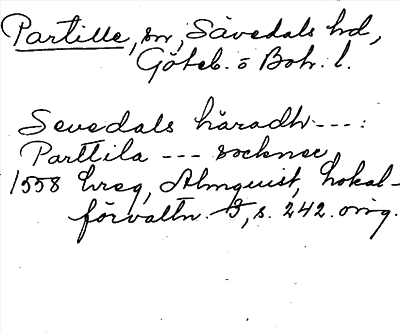 Partille, sn, Sävedals hd,
Göteb. o Boh. l.
Sevedals häradh ---:
Parttila --- socknee
1558 hreg, Almquist, Lokal-
förvaltn. I, s. 242. orig.